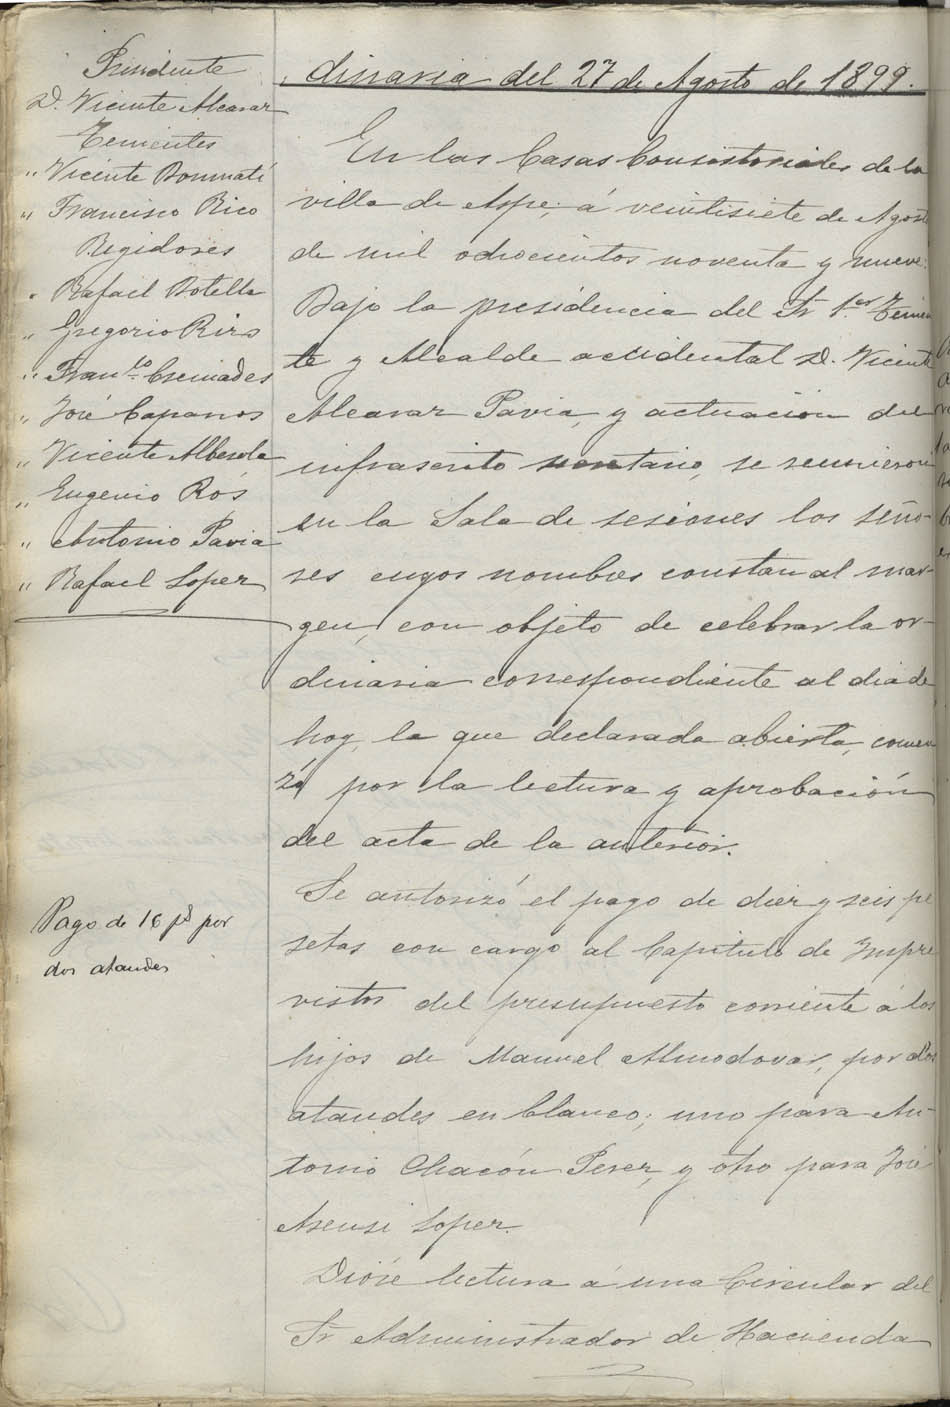 Presidente
D. Vicente Alcaraz
Tenientes
" Vicente Bonmatí
" Francisco Rico
Regidores
" Rafael Botella
" Gregorio Rizo
" Fran.co Cremades
" José Caparros
" Vicente Alberola
" Eugenio Ros
" Antonio Pavia
" Rafael Lopez
dinaria del 27 de Agosto de 1899.
En las Casas Consistoriales de la
villa de Aspe, á veintisiete de Agosto
de mil ochocientos noventa y nueve:
Bajo la presidencia del Sr 1.er Tenien
te y Alcalde accidental D. Vicente
Alcaraz Pavia, y actuacion del
infrascrito secretario, se reunieron
en la Sala de sesiones los seño-
res cuyos nombres constan al mar-
gen, con objeto de celebrar la or-
dinaria correspondiente al dia de
hoy, la que declarada abierta, comen
zó por la lectura y aprobación
del acta de la anterior.
Pago de 16 pts por
dos ataudes
Se autorizó el pago de diez y seis pe
setas con cargo al Capitulo de Impre
vistos del presupuesto corriente á los
hijos de Manuel Almodovar, por dos
ataudes en blanco; uno para An-
tonio Chacón Perez, y otro para José
Asensi Lopez.
Dióse lectura á una Circular del
Sr Administrador de Hacienda